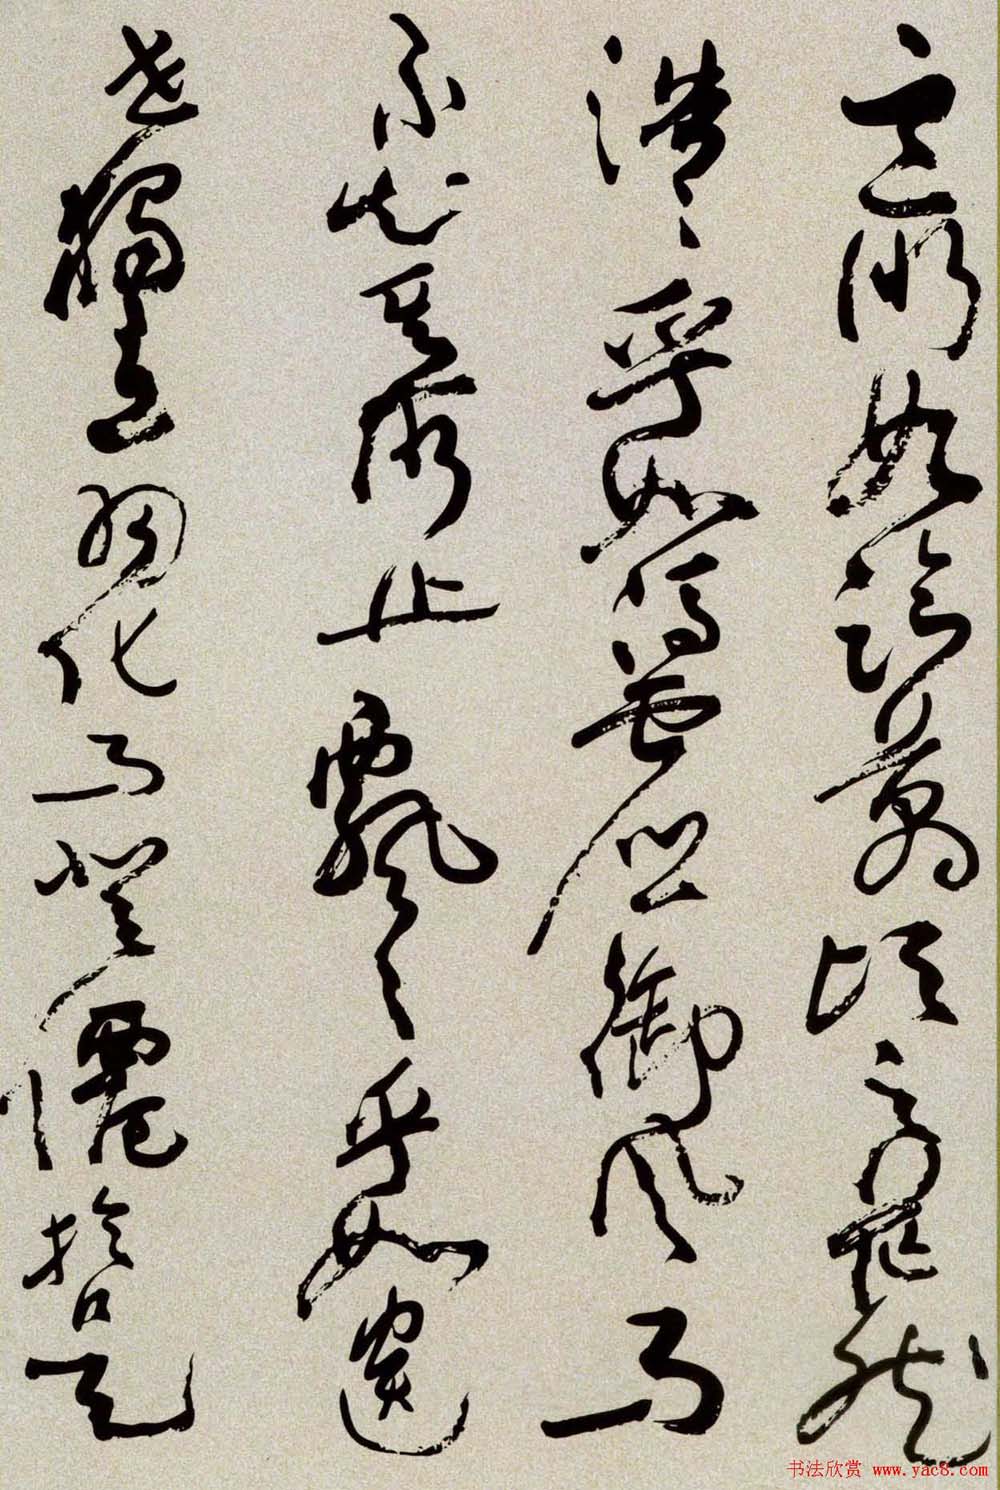 之所如凌萬頃之茫然
浩〻乎如馮虛御風而
不知其所止飄〻乎如遺
世獨立羽化而登僊於是
书法欣赏 www.yac8.com